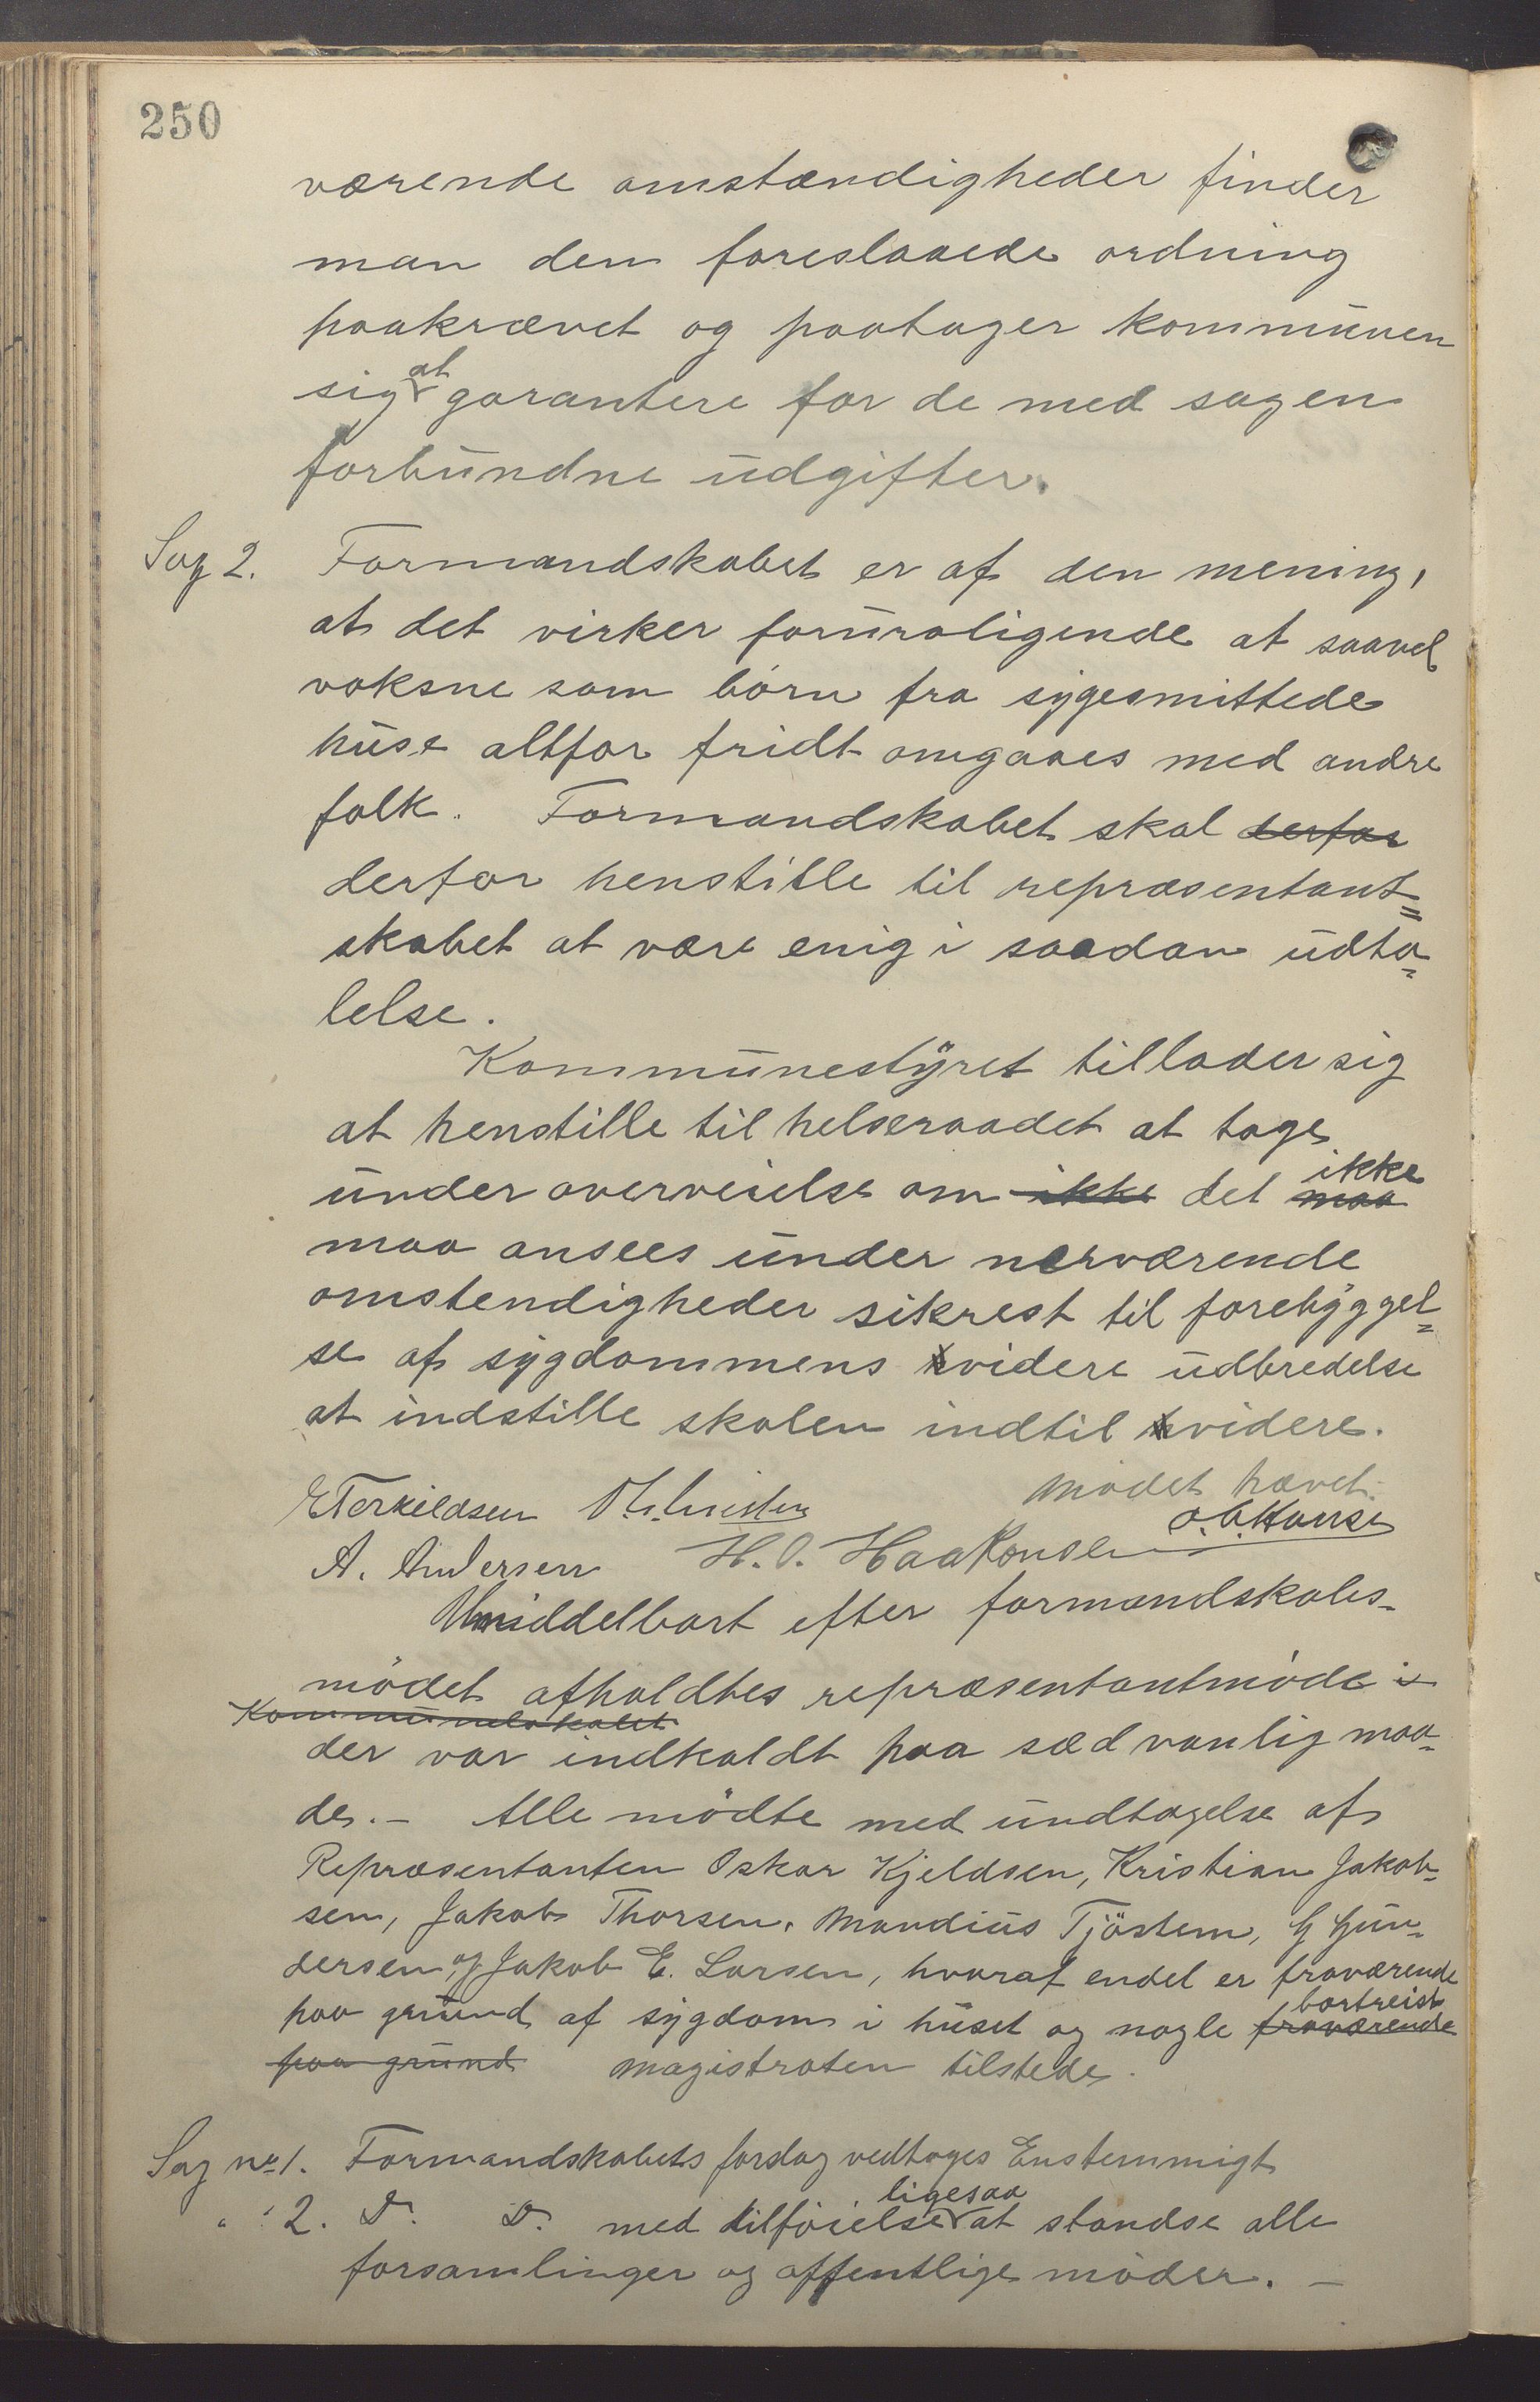 250
værende omstændigheder finder
man den foreslaaede ordning
paakrævet og paatager kommunen
sig at garantere for de med sagen
forbundne udgifter.
Sag 2. Formandskabet er af den mening,
at det virker foruroligende at saavel
voksne som børn fra sygesmittede
huse altfor fridt omgaaes med andre
folk. Formandskabet skal derfor
derfor henstille til repræsentant=
skabet at være enig i saadan udta=
lelse.
Kommunestyret tillader sig
at henstille til helseraadet at tage
under overveielse om ikke det maa ikke
maa ansees under nærværende
omstendigheder sikrest til forebyggel=
se af sygdommens videre udbredelse
at indstille skolen indtil videre.
Mødet hævet.
E Terkildsen
A. Andersen H. O. Haakonsen
Umiddelbart efter formandskabs-
mödet afholdtes repræsentantmöde i
Kommunelokalet
der var indkaldt paa sædvanlig maa=
de. - Alle mödte med undtagelse af
Repræsentanten Oskar Kjeldsen, Kristian Jakob=
sen, Jakob Thorsen, Mandius Tjöstem, G Gun=
dersen og Jakob E. Larsen, hvoraf endel er fraværende
paa grund af sygdom i huset og nogle fraværende bortreist
paa grund Magistraten tilstede.
Sag no 1. Formandskabets forslag vedtages Enstemmigt
" " 2. Do. Do. med tilföielse ligesaa at standse alle
forsamlinger og offentlige möder. -